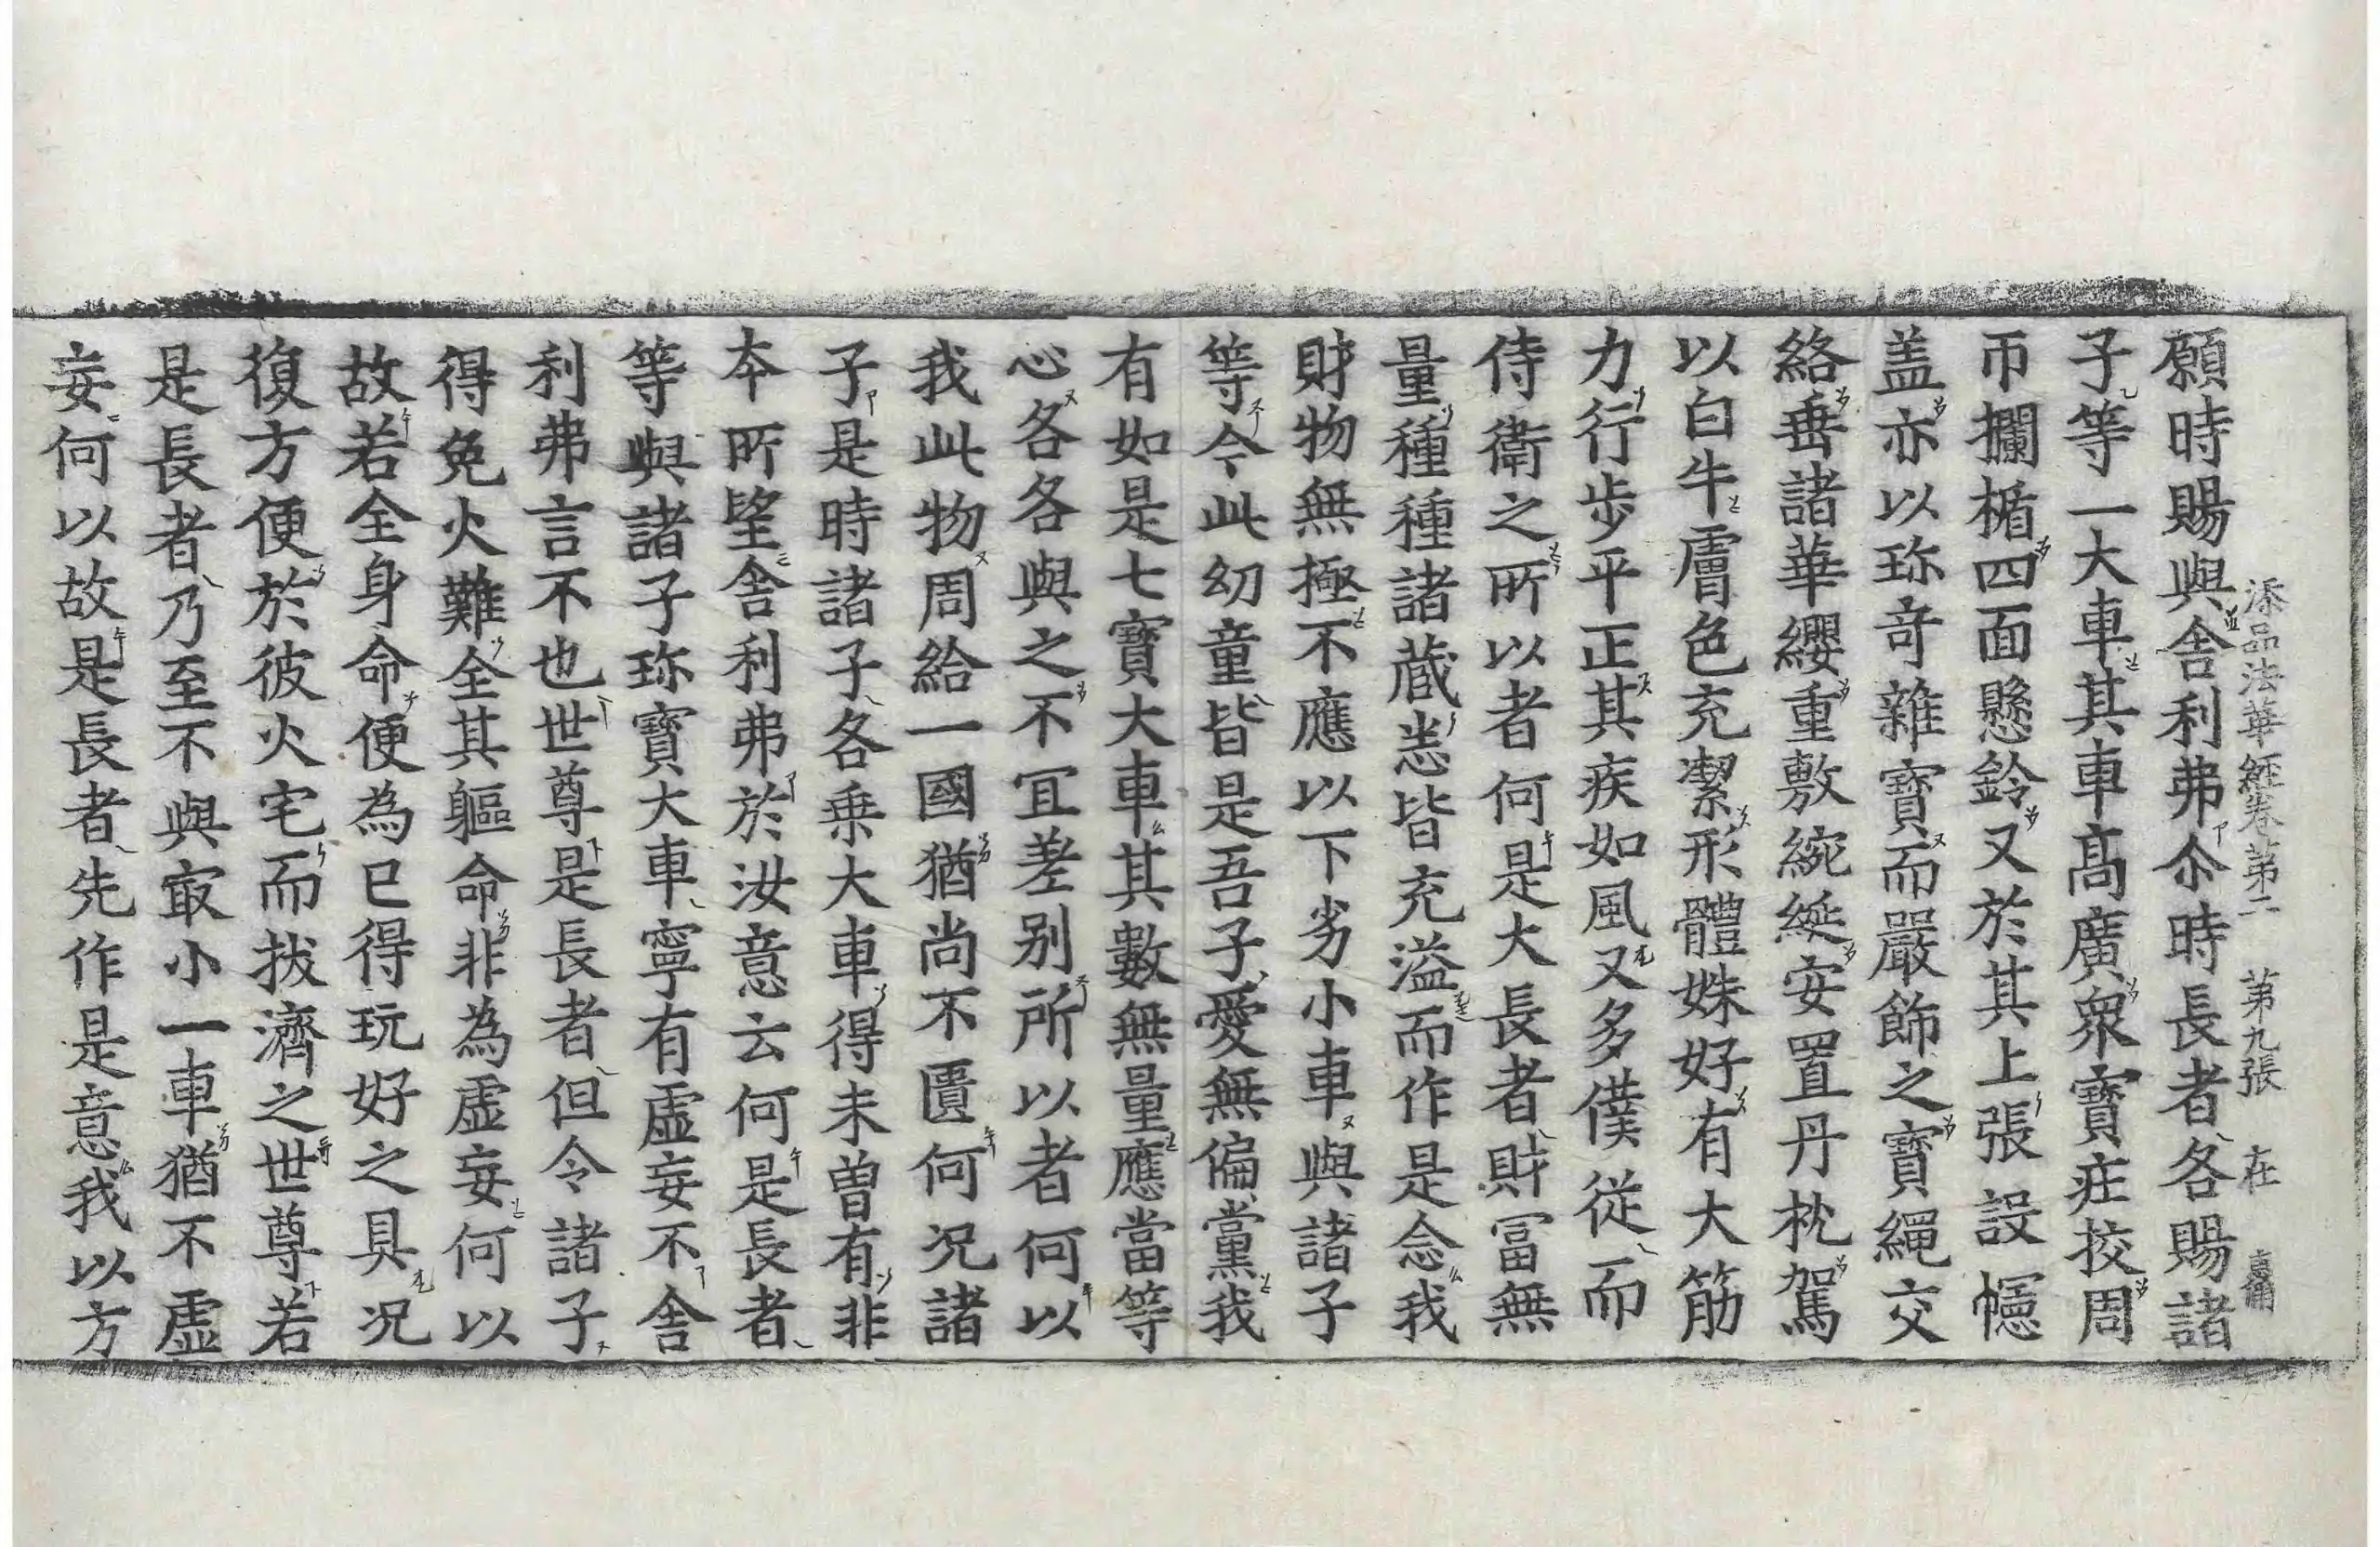 添品法華經卷第二 第九張 在
願時賜與舍利弗尒時長者各賜諸
子等一大車其車髙廣衆寶庄挍周
帀攔楯四面懸鈴又於其上張設幰
盖亦以珎竒雜寶而嚴飾之寶繩交
絡垂諸華纓重敷綩綖安置丹枕駕
以白牛膚色充潔形體姝好有大筋
力行步平正其疾如風又多僕従而
侍衛之所以者何是大長者財冨無
量種種諸蔵悉皆充溢而作是念我
財物無極不應以下劣小車與諸子
等令此幼童皆是吾子愛無偏黨我
有如是七寶大車其數無量應當等
心各各與之不冝差别所以者何以
我此物周給一國猶尚不匱何況諸
子是時諸子各乗大車得未曽有非
夲所望舍利弗於汝意云何是長者
等與諸子珎寶大車寧有虚妄不舍
利弗言不也世尊是長者但令諸子
得免火難全其軀命非為虚妄何以
故若全身命便為已得玩好之具況
復方便於彼火宅而拔濟之世尊若
是長者乃至不與㝡小一車猶不虚
妄何以故是長者先作是意我以方